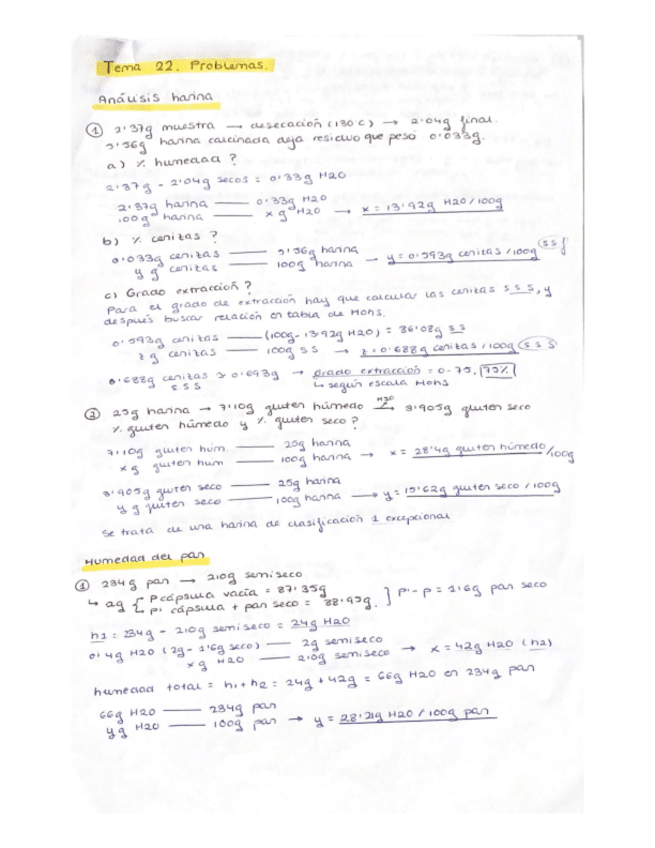 Tema 22. Problemas.
Análisis harina
① 2'37g muestra → desecación (130 C) → 2'04g final.
5'56g harina calcinada deja residuo que pesó 0'033g.
a) % humedad ?
2'37g - 2'04g secos = 0'33g H2O
2'37g harina —— 0'33g H2O
100g harina —— x g H2O → x = 13'92g H2O/100g
b) % cenizas ?
0'033g cenizas —— 5'56g harina
y g cenizas —— 100g harina → y = 0'593g cenizas/100g (ss)
c) Grado extracción ?
Para el grado de extracción hay que calcular las cenizas s.s.s, y
después buscar relación en tabla de Mohs.
0'593g cenizas —— (100g - 13'92g H2O) = 86'08g ss
z g cenizas —— 100g ss → z = 0'688g cenizas/100g (sss)
0'688g cenizas ≃ 0'693g → grado extracción = 0-75, 75%
s.s.s
↳ según escala Mohs
② 25g harina → 7'10g gluten húmedo H2O→ 3'905g gluten seco
% gluten húmedo y % gluten seco ?
7'10g gluten hum. —— 25g harina
x g gluten hum —— 100g harina → x = 28'4g gluten húmedo/100g
3'905g gluten seco —— 25g harina
y g gluten seco —— 100g harina → y = 15'62g gluten seco / 100g
Se trata de una harina de clasificación 1 excepcional
Humedad del pan
① 234g pan → 210g semiseco
↳ 2g { P cápsula vacía = 87'35g
P' cápsula + pan seco = 88'95g. } P' - P = 1'6g pan seco
h1 = 234g - 210g semiseco = 24g H2O
0'4g H2O (2g - 1'6g seco) —— 2g semiseco
x g H2O —— 210g semiseco → x = 42g H2O (h2)
humedad total = h1 + h2 = 24g + 42g = 66g H2O en 234g pan
66g H2O —— 234g pan
y g H2O —— 100g pan → y = 28'21g H2O / 100g pan